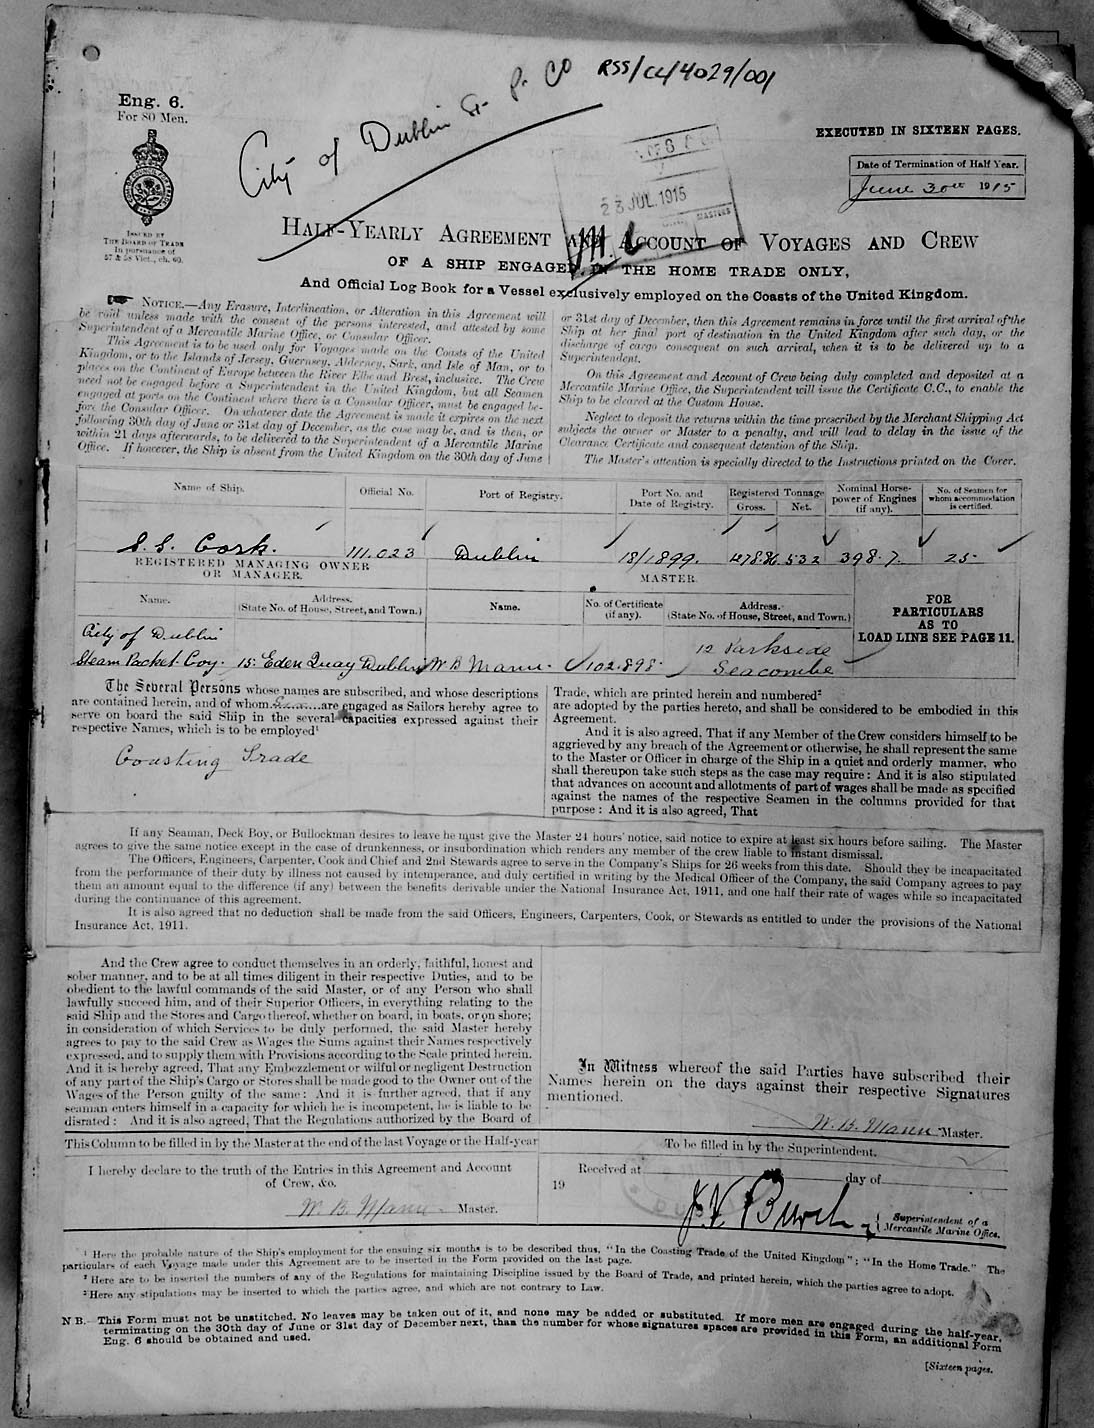 RSS/CL/4029/001
City of Dublin St. P. Co
Eng. 6.
For 80 Men.
EXECUTED IN SIXTEEN PAGES.
Date of Termination of Half Year.
June 30th 1915
23 JUL.1915
MASTERS
ISSUED BY
THE BOARD OF TRADE
In pursuance of
57 & 58 Vict., ch. 60.
HALF-YEARLY AGREEMENT AND ACCOUNT OF VOYAGES AND CREW
OF A SHIP ENGAGED IN THE HOME TRADE ONLY,
And Official Log Book for a Vessel exclusively employed on the Coasts of the United Kingdom.
NOTICE.—Any Erasure, Interlineation, or Alteration in this Agreement will
be void unless made with the consent of the persons interested, and attested by some
Superintendent of a Mercantile Marine Office, or Consular Officer.
This Agreement is to be used only for Voyages made on the Coasts of the United
Kingdom, or to the Islands of Jersey, Guernsey, Alderney, Sark, and Isle of Man, or to
places on the Continent of Europe between the River Elbe and Brest, inclusive. The Crew
need not be engaged before a Superintendent in the United Kingdom, but all Seamen
engaged at ports on the Continent where there is a Consular Officer, must be engaged be-
fore the Consular Officer. On whatever date the Agreement is made it expires on the next
following 30th day of June or 31st day of December, as the case may be, and is then, or
within 21 days afterwards, to be delivered to the Superintendent of a Mercantile Marine
Office. If however, the Ship is absent from the United Kingdom on the 30th day of June
or 31st day of December, then this Agreement remains in force until the first arrival of the
Ship at her final port of destination in the United Kingdom after such day, or the
discharge of cargo consequent on such arrival, when it is to be delivered up to a
Superintendent.
On this Agreement and Account of Crew being duly completed and deposited at a
Mercantile Marine Office, the Superintendent will issue the Certificate C.C., to enable the
Ship to be cleared at the Custom House.
Neglect to deposit the returns within the time prescribed by the Merchant Shipping Act
subjects the owner or Master to a penalty, and will lead to delay in the issue of the
Clearance Certificate and consequent detention of the Ship.
The Master's attention is specially directed to the Instructions printed on the Cover.
Name of Ship. Official No. Port of Registry. Port No. and Date of Registry. Registered Tonnage Gross. Net. Nominal Horse-power of Engines (if any). No. of Seamen for whom accommodation is certified.
S.S. Cork. 111.023 Dublin 18/1899. 1278.86 532 398.7. 25
REGISTERED MANAGING OWNER
OR MANAGER.
MASTER.
Name. Address. (State No. of House, Street, and Town.) Name. No. of Certificate (if any). Address. (State No. of House, Street, and Town.)
FOR
PARTICULARS
AS TO
LOAD LINE SEE PAGE 11.
City of Dublin
Steam Packet Coy. 15 Eden Quay Dublin W B Mann. 102.898. 12 Parkside
Seacombe
The Several Persons whose names are subscribed, and whose descriptions
are contained herein, and of whom are engaged as Sailors hereby agree to
serve on board the said Ship in the several capacities expressed against their
respective Names, which is to be employed¹
Coasting Trade
Trade, which are printed herein and numbered²
are adopted by the parties hereto, and shall be considered to be embodied in this
Agreement.
And it is also agreed, That if any Member of the Crew considers himself to be
aggrieved by any breach of the Agreement or otherwise, he shall represent the same
to the Master or Officer in charge of the Ship in a quiet and orderly manner, who
shall thereupon take such steps as the case may require: And it is also stipulated
that advances on account and allotments of part of wages shall be made as specified
against the names of the respective Seamen in the columns provided for that
purpose: And it is also agreed, That
If any Seaman, Deck Boy, or Bullockman desires to leave he must give the Master 24 hours' notice, said notice to expire at least six hours before sailing. The Master
agrees to give the same notice except in the case of drunkenness, or insubordination which renders any member of the crew liable to instant dismissal.
The Officers, Engineers, Carpenter, Cook and Chief and 2nd Stewards agree to serve in the Company's Ships for 26 weeks from this date. Should they be incapacitated
from the performance of their duty by illness not caused by intemperance, and duly certified in writing by the Medical Officer of the Company, the said Company agrees to pay
them an amount equal to the difference (if any) between the benefits derivable under the National Insurance Act, 1911, and one half their rate of wages while so incapacitated
during the continuance of this agreement.
It is also agreed that no deduction shall be made from the said Officers, Engineers, Carpenters, Cook, or Stewards as entitled to under the provisions of the National
Insurance Act, 1911.
And the Crew agree to conduct themselves in an orderly, faithful, honest and
sober manner, and to be at all times diligent in their respective Duties, and to be
obedient to the lawful commands of the said Master, or of any Person who shall
lawfully succeed him, and of their Superior Officers, in everything relating to the
said Ship and the Stores and Cargo thereof, whether on board, in boats, or on shore;
in consideration of which Services to be duly performed, the said Master hereby
agrees to pay to the said Crew as Wages the Sums against their Names respectively
expressed, and to supply them with Provisions according to the Scale printed herein.
And it is hereby agreed, That any Embezzlement or wilful or negligent Destruction
of any part of the Ship's Cargo or Stores shall be made good to the Owner out of the
Wages of the Person guilty of the same: And it is further agreed, that if any
seaman enters himself in a capacity for which he is incompetent, he is liable to be
disrated: And it is also agreed, That the Regulations authorized by the Board of
In Witness whereof the said Parties have subscribed their
Names herein on the days against their respective Signatures
mentioned.
W. B. Mann Master.
This Column to be filled in by the Master at the end of the last Voyage or the Half-year
I hereby declare to the truth of the Entries in this Agreement and Account
of Crew, &c.
W. B. Mann. Master.
To be filled in by the Superintendent.
Received at
19 day of
Burch
Superintendent of a
Mercantile Marine Office.
¹ Here the probable nature of the Ship's employment for the ensuing six months is to be described thus, "In the Coasting Trade of the United Kingdom"; "In the Home Trade." The
particulars of each Voyage made under this Agreement are to be inserted in the Form provided on the last page.
² Here are to be inserted the numbers of any of the Regulations for maintaining Discipline issued by the Board of Trade, and printed herein, which the parties agree to adopt.
³ Here any stipulations may be inserted to which the parties agree, and which are not contrary to Law.
N B.—This Form must not be unstitched. No leaves may be taken out of it, and none may be added or substituted. If more men are engaged during the half-year,
terminating on the 30th day of June or 31st day of December next, than the number for whose signatures spaces are provided in this Form, an additional Form
Eng. 6 should be obtained and used.
[Sixteen pages.